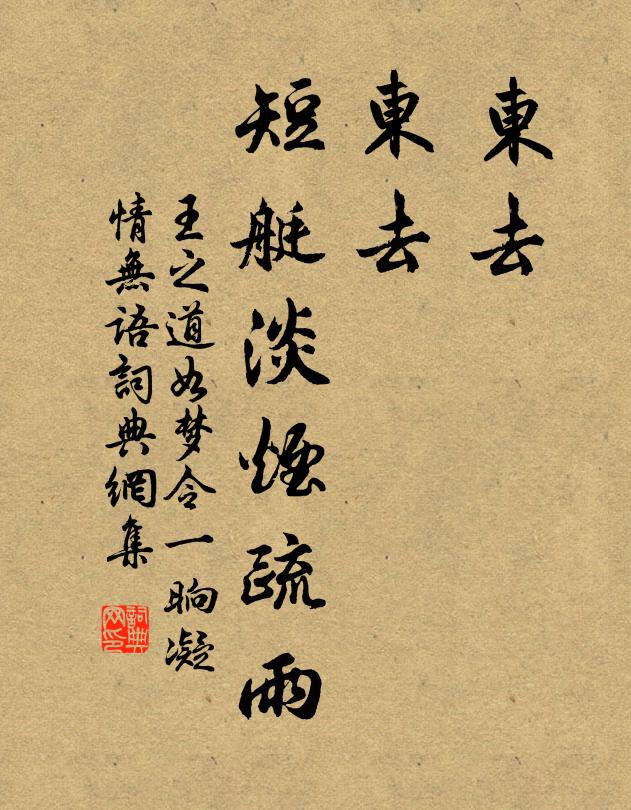 東去
東去
短艇淡煙疏雨
王之道如梦令一晌凝
情無語詞典網集
詞典网印